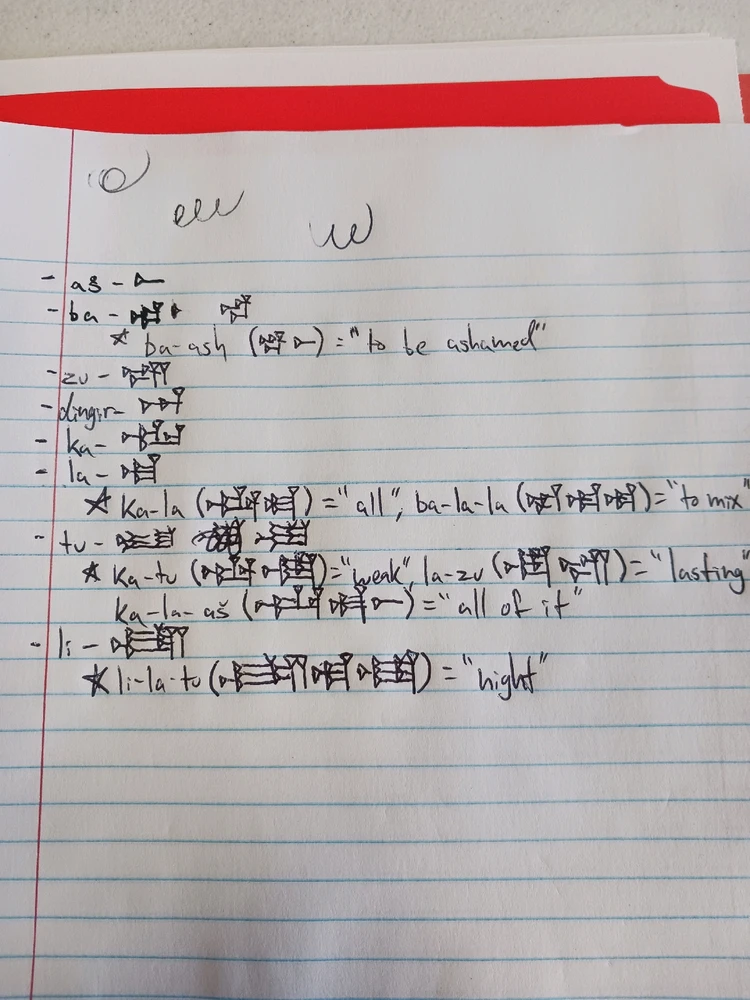 - aš - 𒀸
- ba - 𒁀 𒁀
* ba-ash (𒁀 𒀸) = "to be ashamed"
- zu - 𒍪
- dingir - 𒀭
- ka - 𒅗
- la - 𒆷
* Ka-la (𒅗 𒆷) = "all", ba-la-la (𒁀 𒆷 𒆷) = "to mix"
- tu - 𒌅 𒌅
* Ka-tu (𒅗 𒌅) = "weak", la-zu (𒆷 𒍪) = "lasting"
ka-la-aš (𒅗 𒆷 𒀸) = "all of it"
- li - 𒇷
* li-la-tu (𒇷 𒆷 𒌅) = "night"